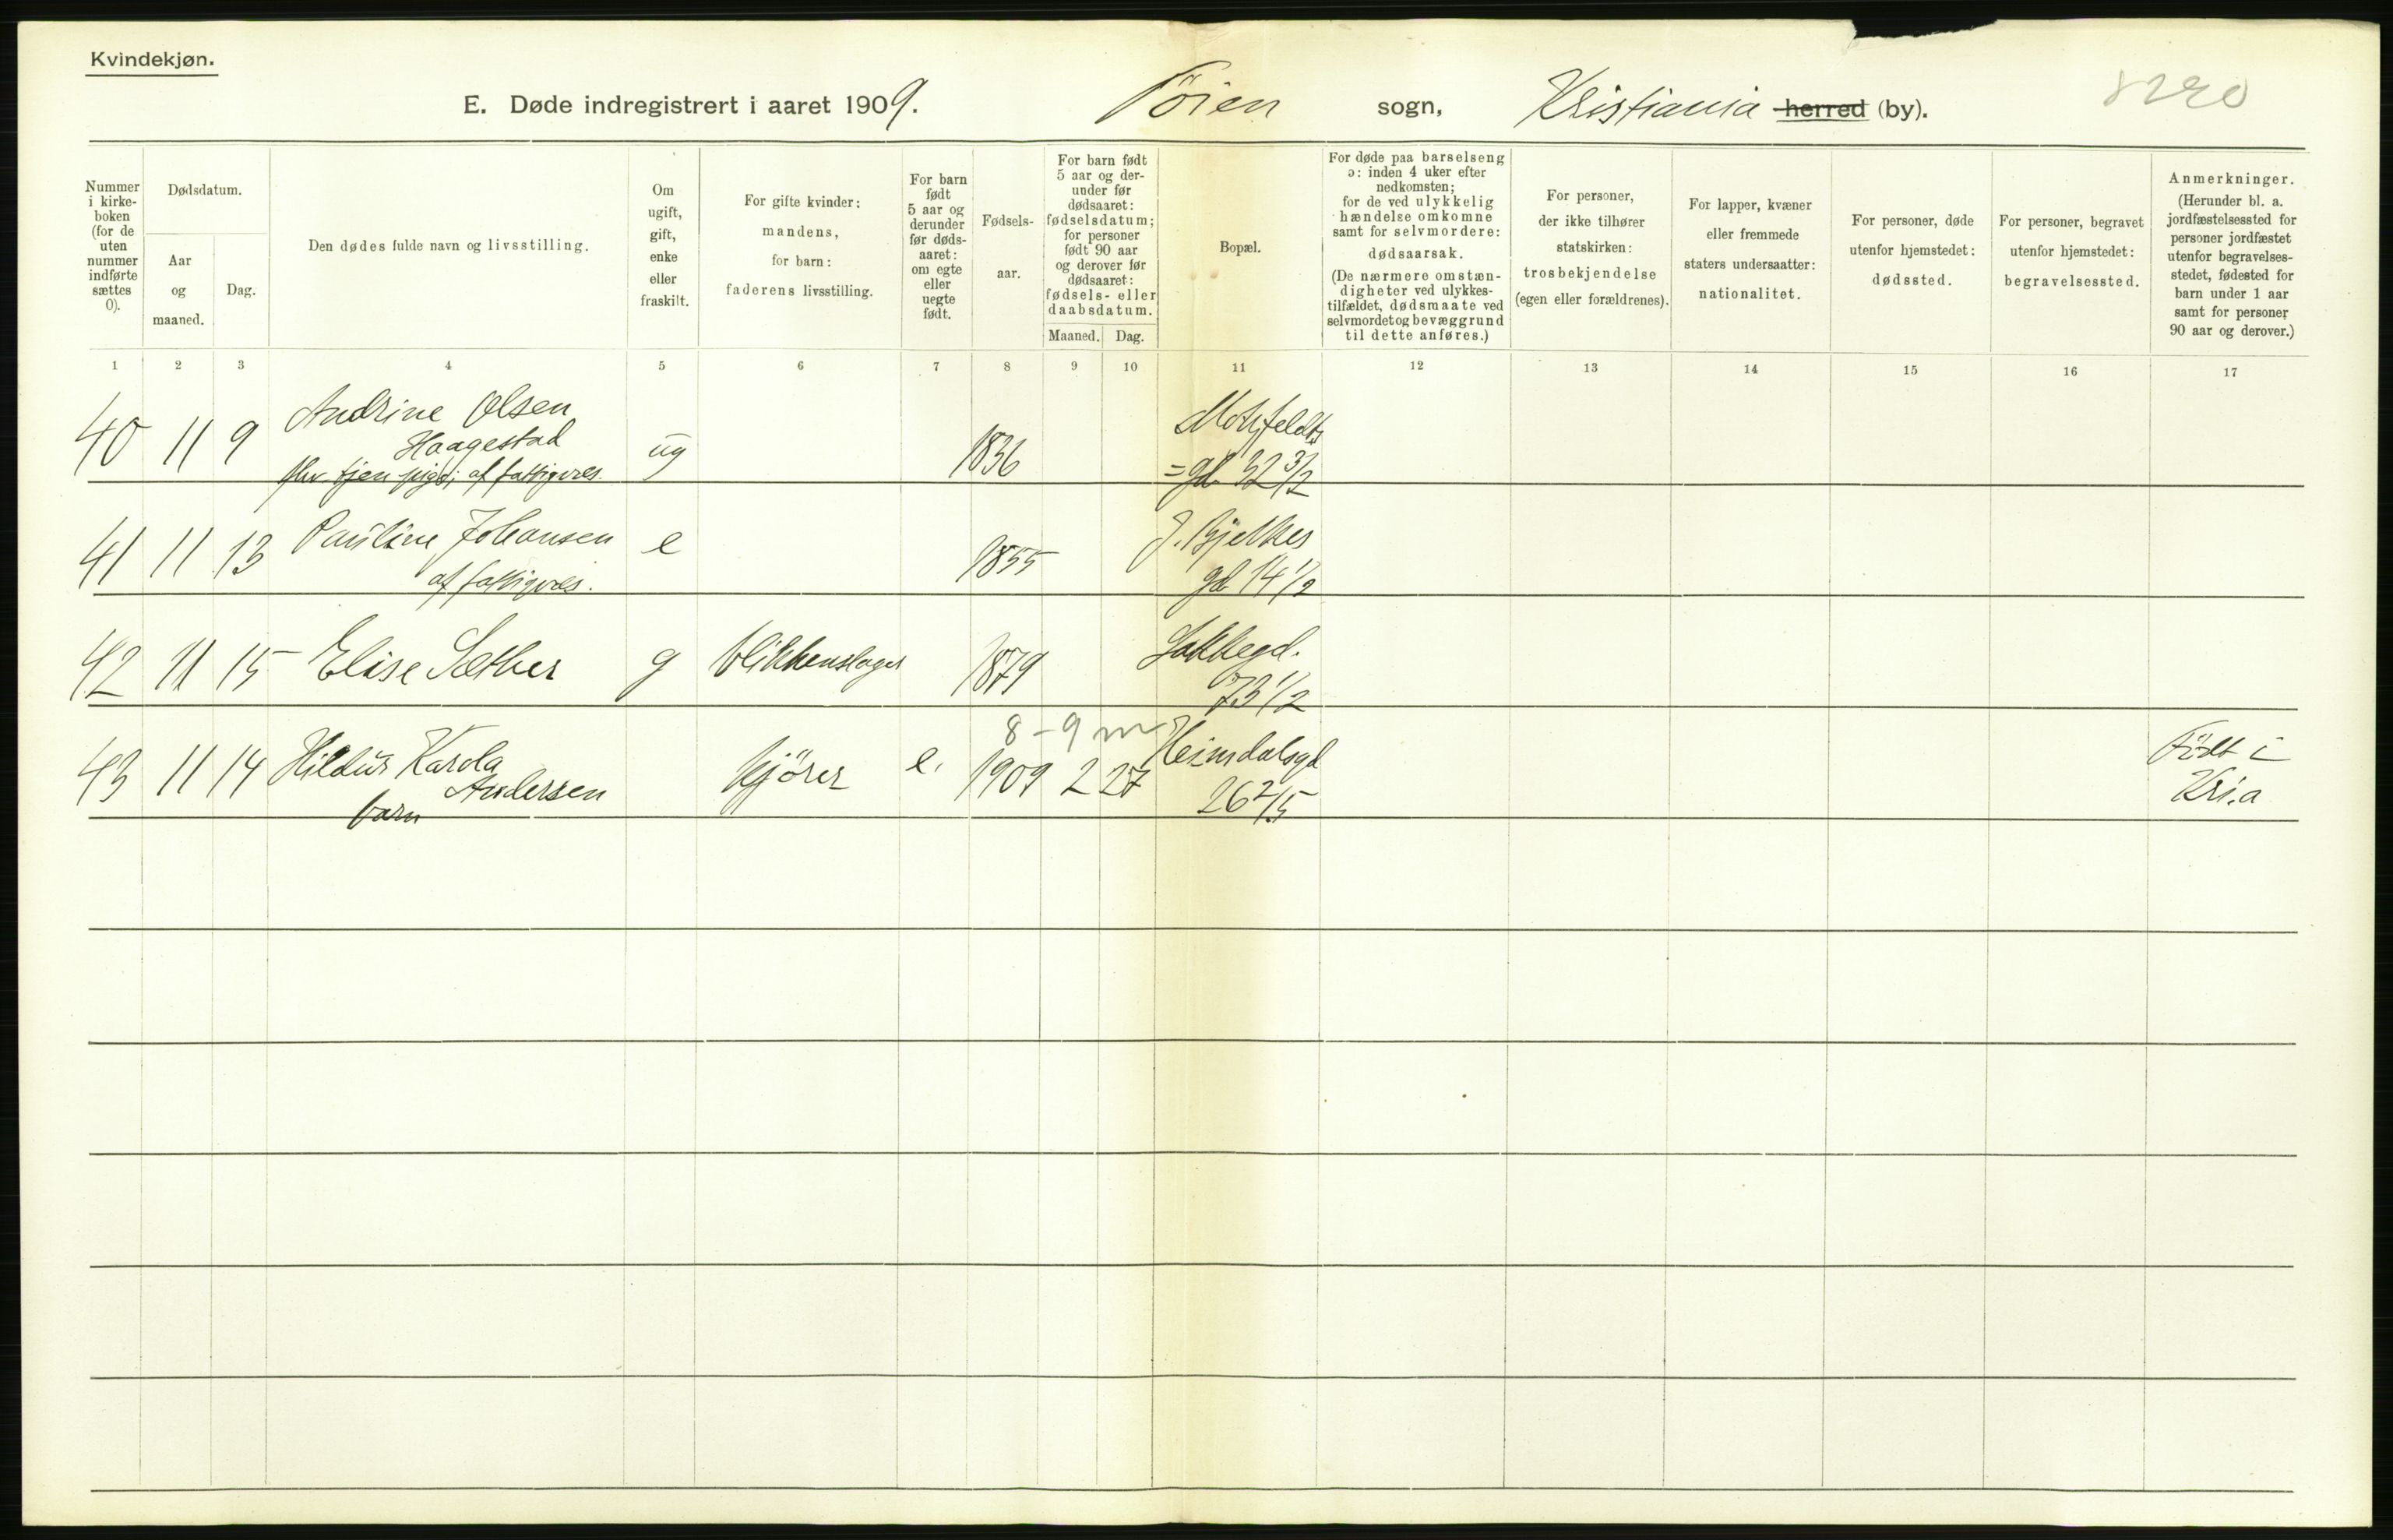 Kvindekjøn.
E. Døde indregistrert i aaret 1909. Tøien sogn, Kristiania herred (by). 8220
Nummer
i kirke-
boken
(for de
uten
nummer
indførte
sættes
0).
Dødsdatum.
Aar
og
maaned.
Dag.
Den dødes fulde navn og livsstilling.
Om
ugift,
gift,
enke
eller
fraskilt.
For gifte kvinder:
mandens,
for barn:
faderens livsstilling.
For barn
født
5 aar og
derunder
før døds-
aaret:
om egte
eller
uegte
født.
Fødsels-
aar.
For barn født
5 aar og der-
under før
dødsaaret:
fødselsdatum;
for personer
født 90 aar
og derover før
dødsaaret:
fødsels- eller
daabsdatum.
Maaned. Dag.
Bopæl.
For døde paa barselseng
ɔ: inden 4 uker efter
nedkomsten;
for de ved ulykkelig
hændelse omkomne
samt for selvmordere:
dødsaarsak.
(De nærmere omstæn-
digheter ved ulykkes-
tilfældet, dødsmaate ved
selvmordet og bevæggrund
til dette anføres.)
For personer,
der ikke tilhører
statskirken:
trosbekjendelse
(egen eller forældrenes).
For lapper, kvæner
eller fremmede
staters undersaatter:
nationalitet.
For personer, døde
utenfor hjemstedet:
dødssted.
For personer, begravet
utenfor hjemstedet:
begravelsessted.
Anmerkninger.
(Herunder bl. a.
jordfæstelsessted for
personer jordfæstet
utenfor begravelses-
stedet, fødested for
barn under 1 aar
samt for personer
90 aar og derover.)
1 2 3 4 5 6 7 8 9 10 11 12 13 14 15 16 17
40 11 9 Andrine Olsen ug 1836 Motzfeldts
Haagestad =gd. 32 3/2
tjen pige; af fattigvæs.
41 11 13 Pauline Johansen e 1855 J. Bjelkes
af fattigvæs. gd 14 1/2
42 11 15 Elise Sæther g blikkenslager 1879 Lakkegd.
73 1/2
8 - 9 m
43 11 14 Hildur Karola kjører e. 1909 2 27 Heimdalsgd Født i
Andersen 26 2/5 Kri.a
barn